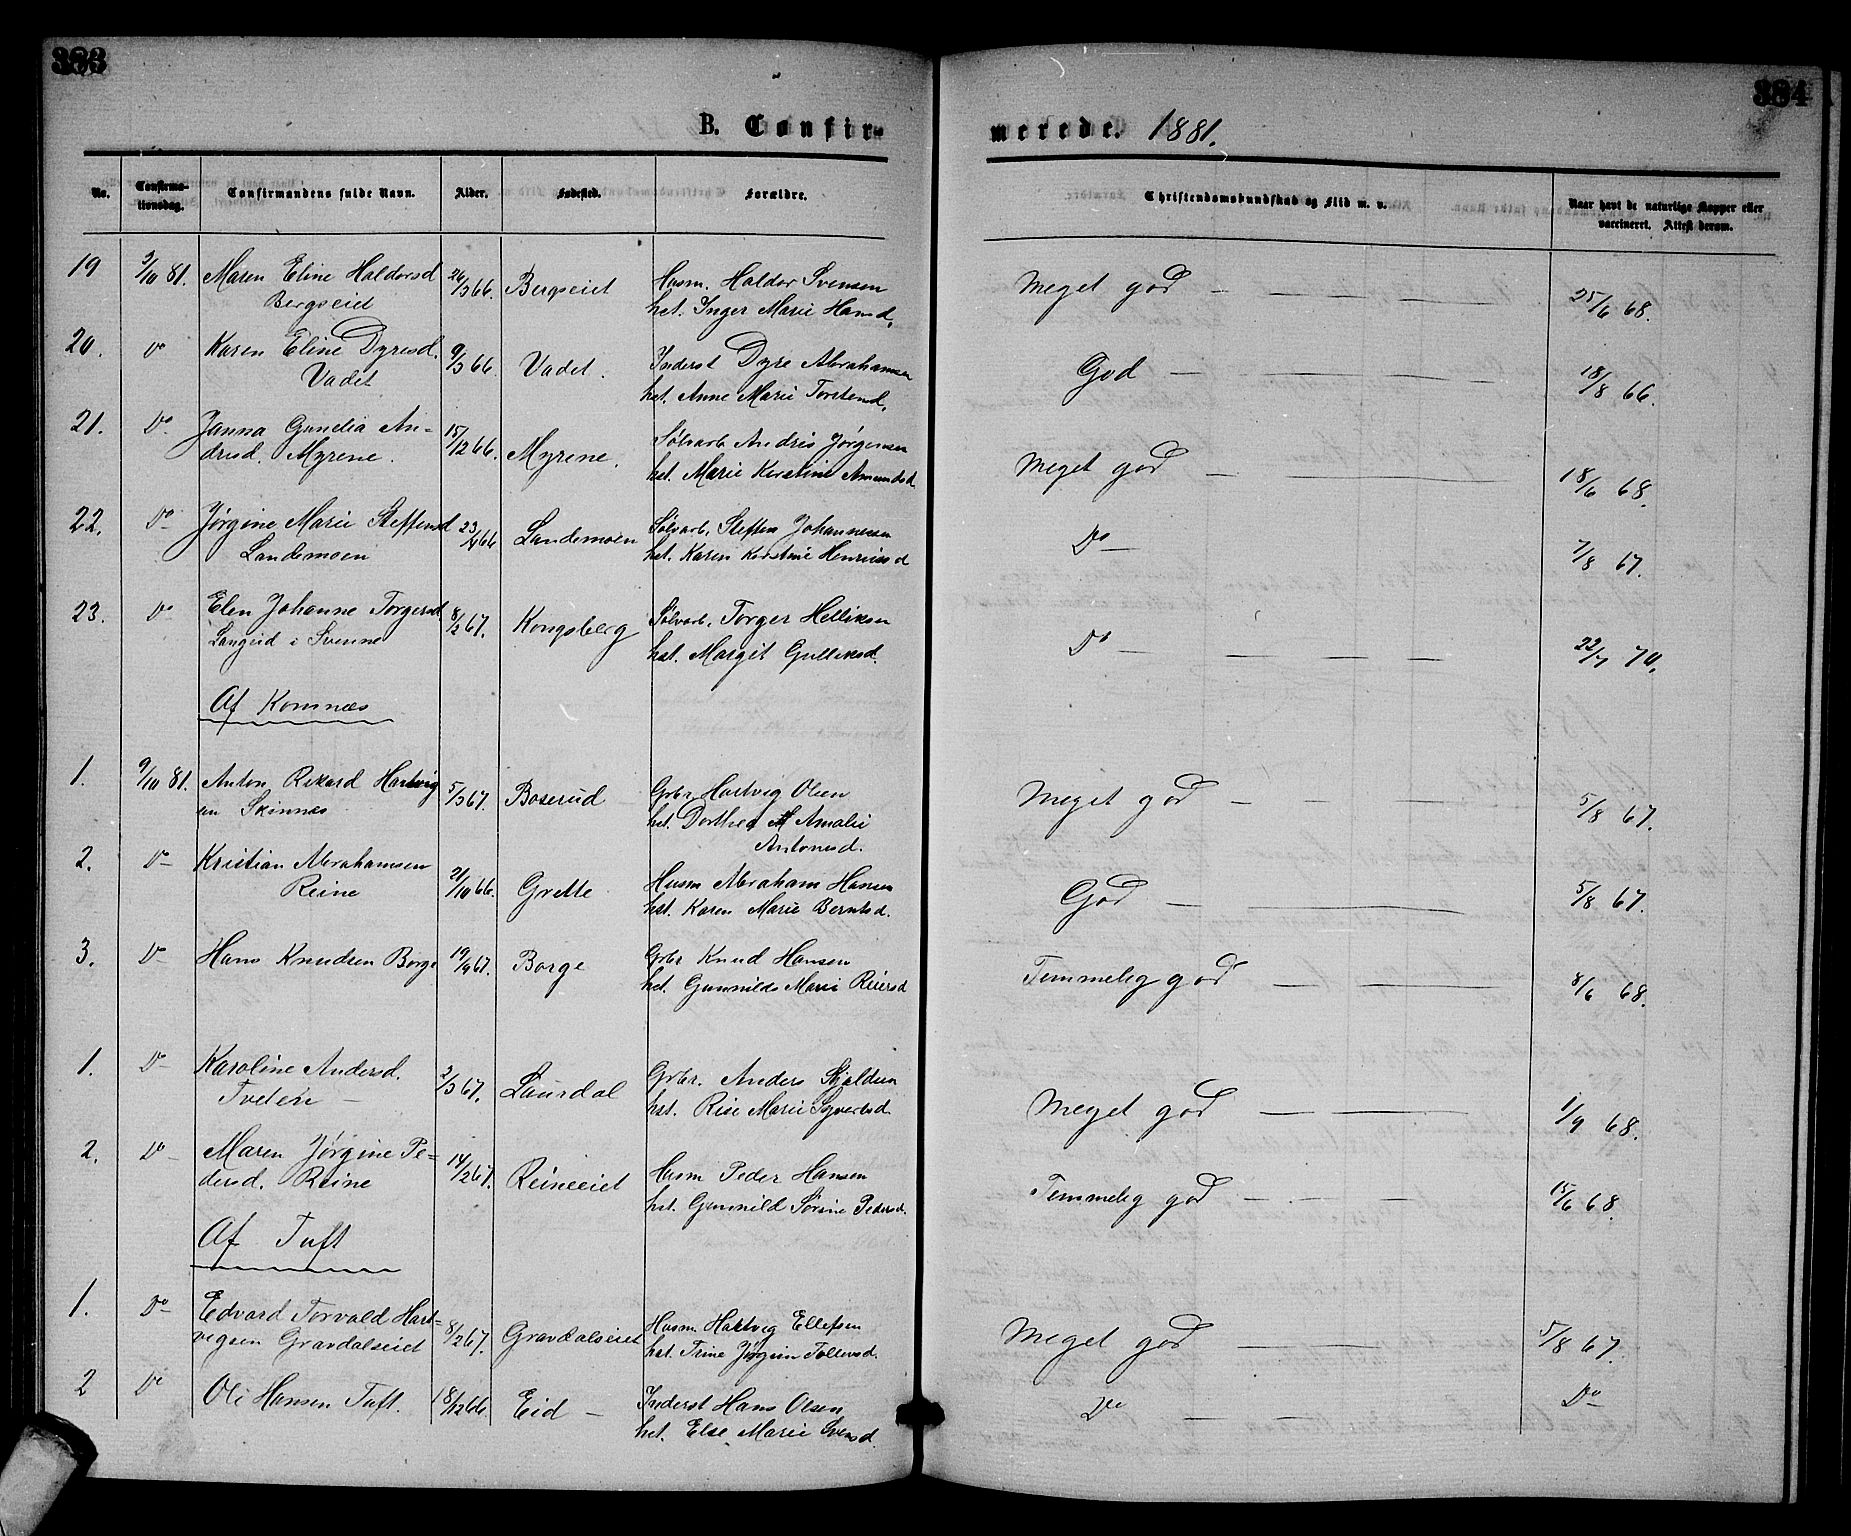 383
384
B. Confir-
merede. 1881.
No.
Confirma-
tionsdag.
Confirmandens fulde Navn.
Alder.
Fødested.
Forældre.
Christendomskundskab og Flid m. v.
Naar havt de naturlige Kopper eller
vaccineret. Attest derom.
19 2/10 81. Maren Eline Haldorsd 26/3 66. Bergseiet Husm. Haldor Svensen Meget god — 25/6 68.
Bergseiet hst. Inger Marie Hansd.
20. Do Karen Eline Dyresd. 9/3 66. Vadet. Inderst Dyre Abrahamsen God — 18/8 66.
Vadet hst. Anne Marie Torstensd.
21. Do Janna Gundia An- 15/12 66. Myrene. Sølvarb Andris Jørgensen Meget god — 18/6 68.
dresd. Myrene. hst. Marie Kirstine Amundsd
22. Do Jørgine Marie Steffensd 23/4 66 Landemoen Sølvarb. Steffen Johannessen Do — 7/8 67.
Landemoen hst. Karen Kirstine Henriksd
23. Do Elen Johanne Torgersd 8/2 67. Kongsberg Sølvarb. Torger Helliksen Do — 22/7 70.
Langerud i Svenne hst. Margit Gulliksd.
Af Komnæs
1. 9/10 81. Anton Rikard Hartvig 5/3 67. Baserud Grbr. Hartvig Olsen Meget god — 5/8 67.
sen Skinnes hst. Dorthea M Amalie
Antonsd.
2. Do Kristian Abrahamsen 21/10 66. Grette Husm Abraham Hansen God — 5/8 67.
Reine hst. Karen Marie Berntsd.
3. Do Hans Knudsen Borge 19/9 67. Borge Grbr Knud Hansen Temmelig god — 8/6 68.
hst. Gunnilde Marie Reiersd
1. Do Karoline Andersd. 2/3 67. Laurdal Grbr. Anders Skjeldsen Meget god — 1/9 68.
Tveten — hst. Rise Marie Syvertsd.
2. Do Maren Jørgine Pe- 14/2 67. Reineeiet Husm Peder Hansen Temmelig god — 15/6 68.
dersd. Reine hst. Gunnild Sørine Pedersd.
Af Tuft
1. Do Edvard Torvald Hart- 8/2 67. Gravdalseiet Husm. Hartvig Ellefsen Meget god — 5/8 67.
vigsen Gravdalseiet hst. Trine Jørgine Tollevsd.
2 Do Ole Hansen Tuft. 18/12 66. Eid — Inderst Hans Olsen Do — Do
hst. Else Marie Svensd.